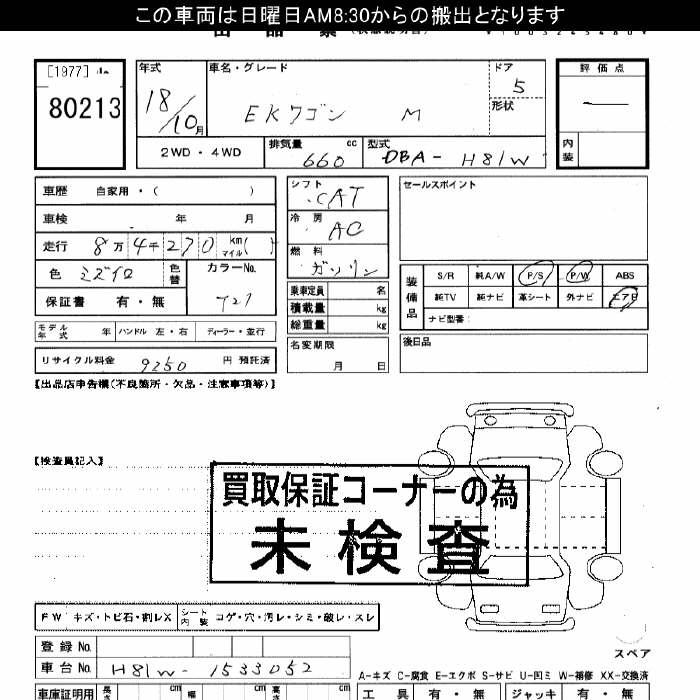 この車両は日曜日AM8:30からの搬出となります
[1977]
80213
年式
18/10月
車名・グレード
EKワゴン M
ドア
5
形状
評価点
内装
2WD・4WD
排気量 cc
660
型式
DBA-H81W
車歴 自家用・( )
車検 年 月
走行 8万4千270 km マイル( )
色 ミズイロ 色替
カラーNo.
T27
保証書 有・無
モデル年式 年 ハンドル 左・右 ディーラー・並行
リサイクル料金 9250 円 預託済
シフト
CAT
冷房
AC
燃料
ガソリン
乗車定員 名
積載量 kg
総重量 kg
名変期限
月 日
セールスポイント
装備品
S/R 純A/W P/S P/W ABS
純TV 純ナビ 革シート 外ナビ エアB
ナビ型番:
後日品
【出品店申告欄(不良箇所・欠品・注意事項等)】
【検査員記入】
買取保証コーナーの為
未検査
FW キズ・トビ石・割レX
シート内装 コゲ・穴・汚レ・シミ・破レ・スレ
登録No.
車台No. H81W-1533052
スペア
A-キズ C-腐食 E-エクボ S-サビ U-凹ミ W-補修 XX-交換済
車庫証明用 長さ cm 幅 cm 高さ cm
工具 有・無 ジャッキ 有・無